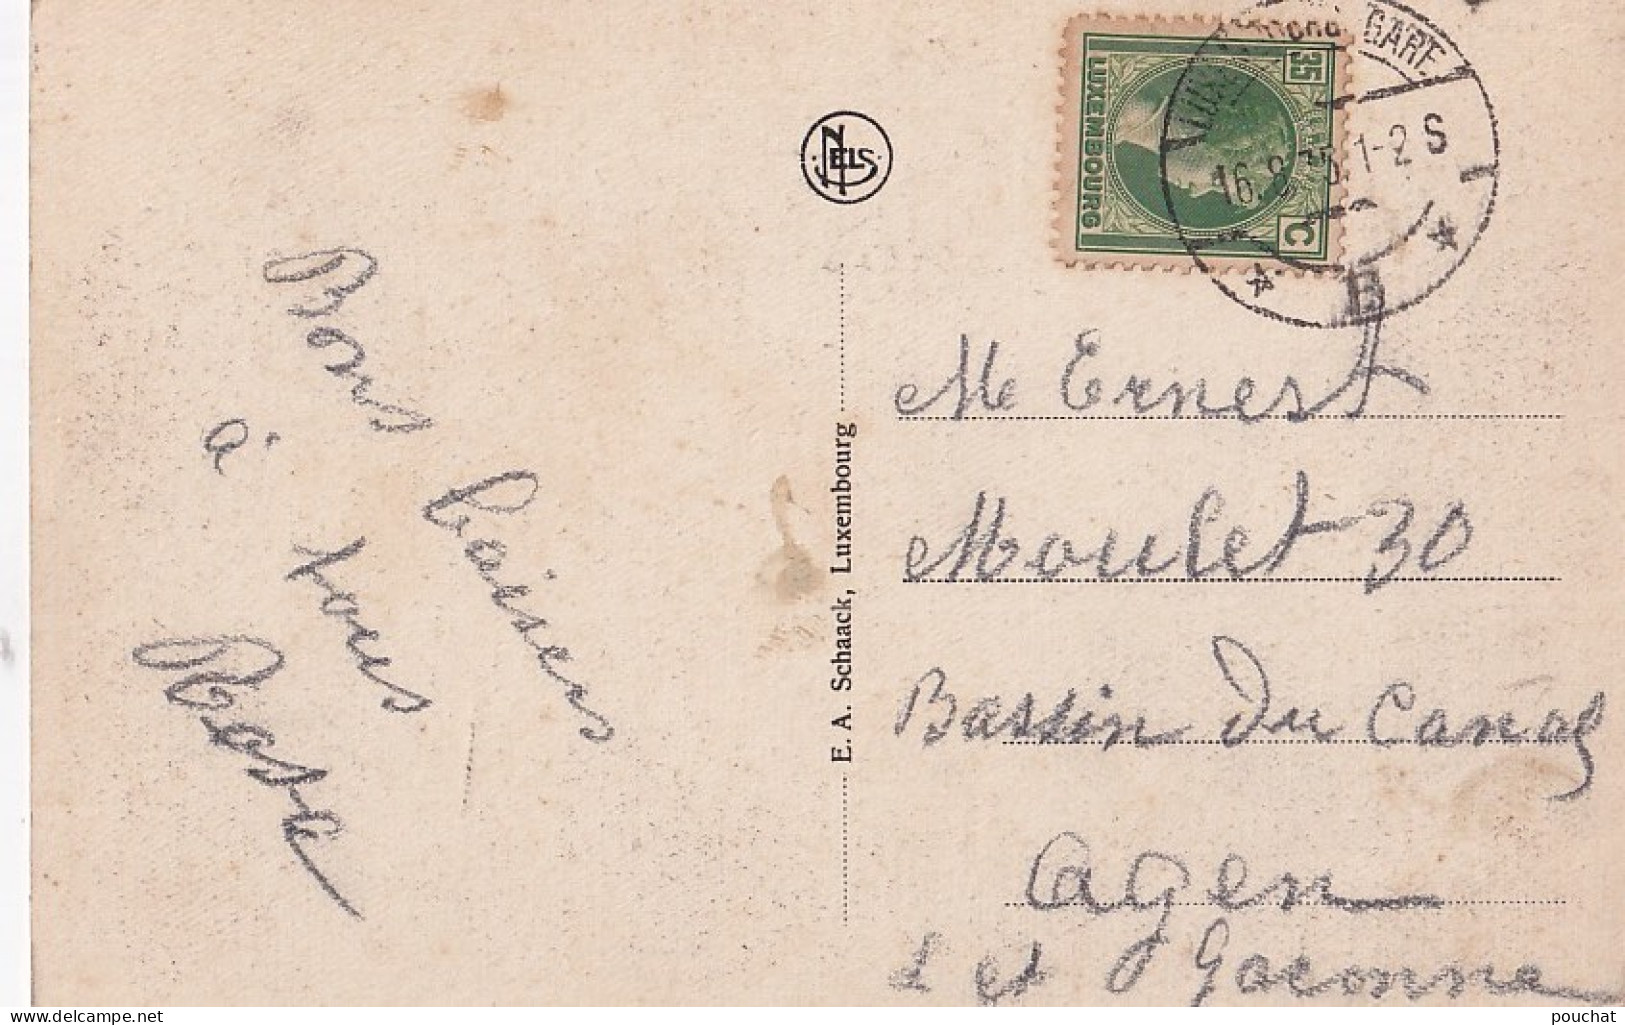 Bons baisers
à tous
Rosa
NELS
E. A. Schaack, Luxembourg
35
LUXEMBOURG
C
GARE
16.8.35.1-2 S
B
Me Ernest
Moulet 30
Bassin Du Canal
Agen
L et Garonne
pouchat
www.delcampe.net